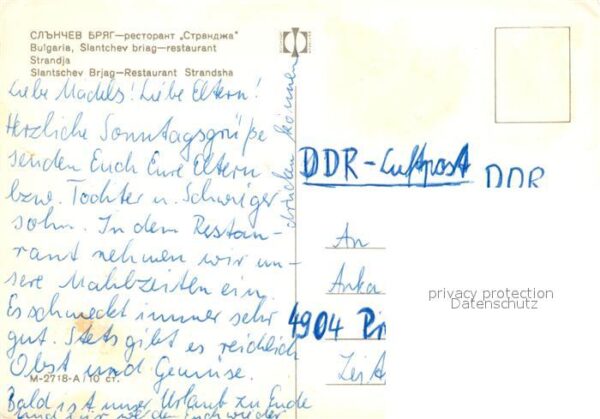 СЛЪНЧЕВ БРЯГ—ресторант „Странджа“
Bulgaria, Slantchev briag—restaurant
Strandja
Slantschev Brjag—Restaurant Strandsha
Liebe Mädels! Liebe Eltern!
Herzliche Sonntagsgrüße
senden Euch Eure Eltern
bzw. Tochter u. Schwiger
sohn. In dem Restau-
rant nehmen wir un-
sere Mahlzeiten ein.
Es schmeckt immer sehr
gut. Stets gibt es reichlich
Obst und Gemüse.
М-2718-А/10 ст.
Bald ist unser Urlaub zu Ende
und wir werden Euch wieder
drücken können
DDR-Luftpost
DDR
An
Anka
4904 Pr
Zeit
privacy protection
Datenschutz